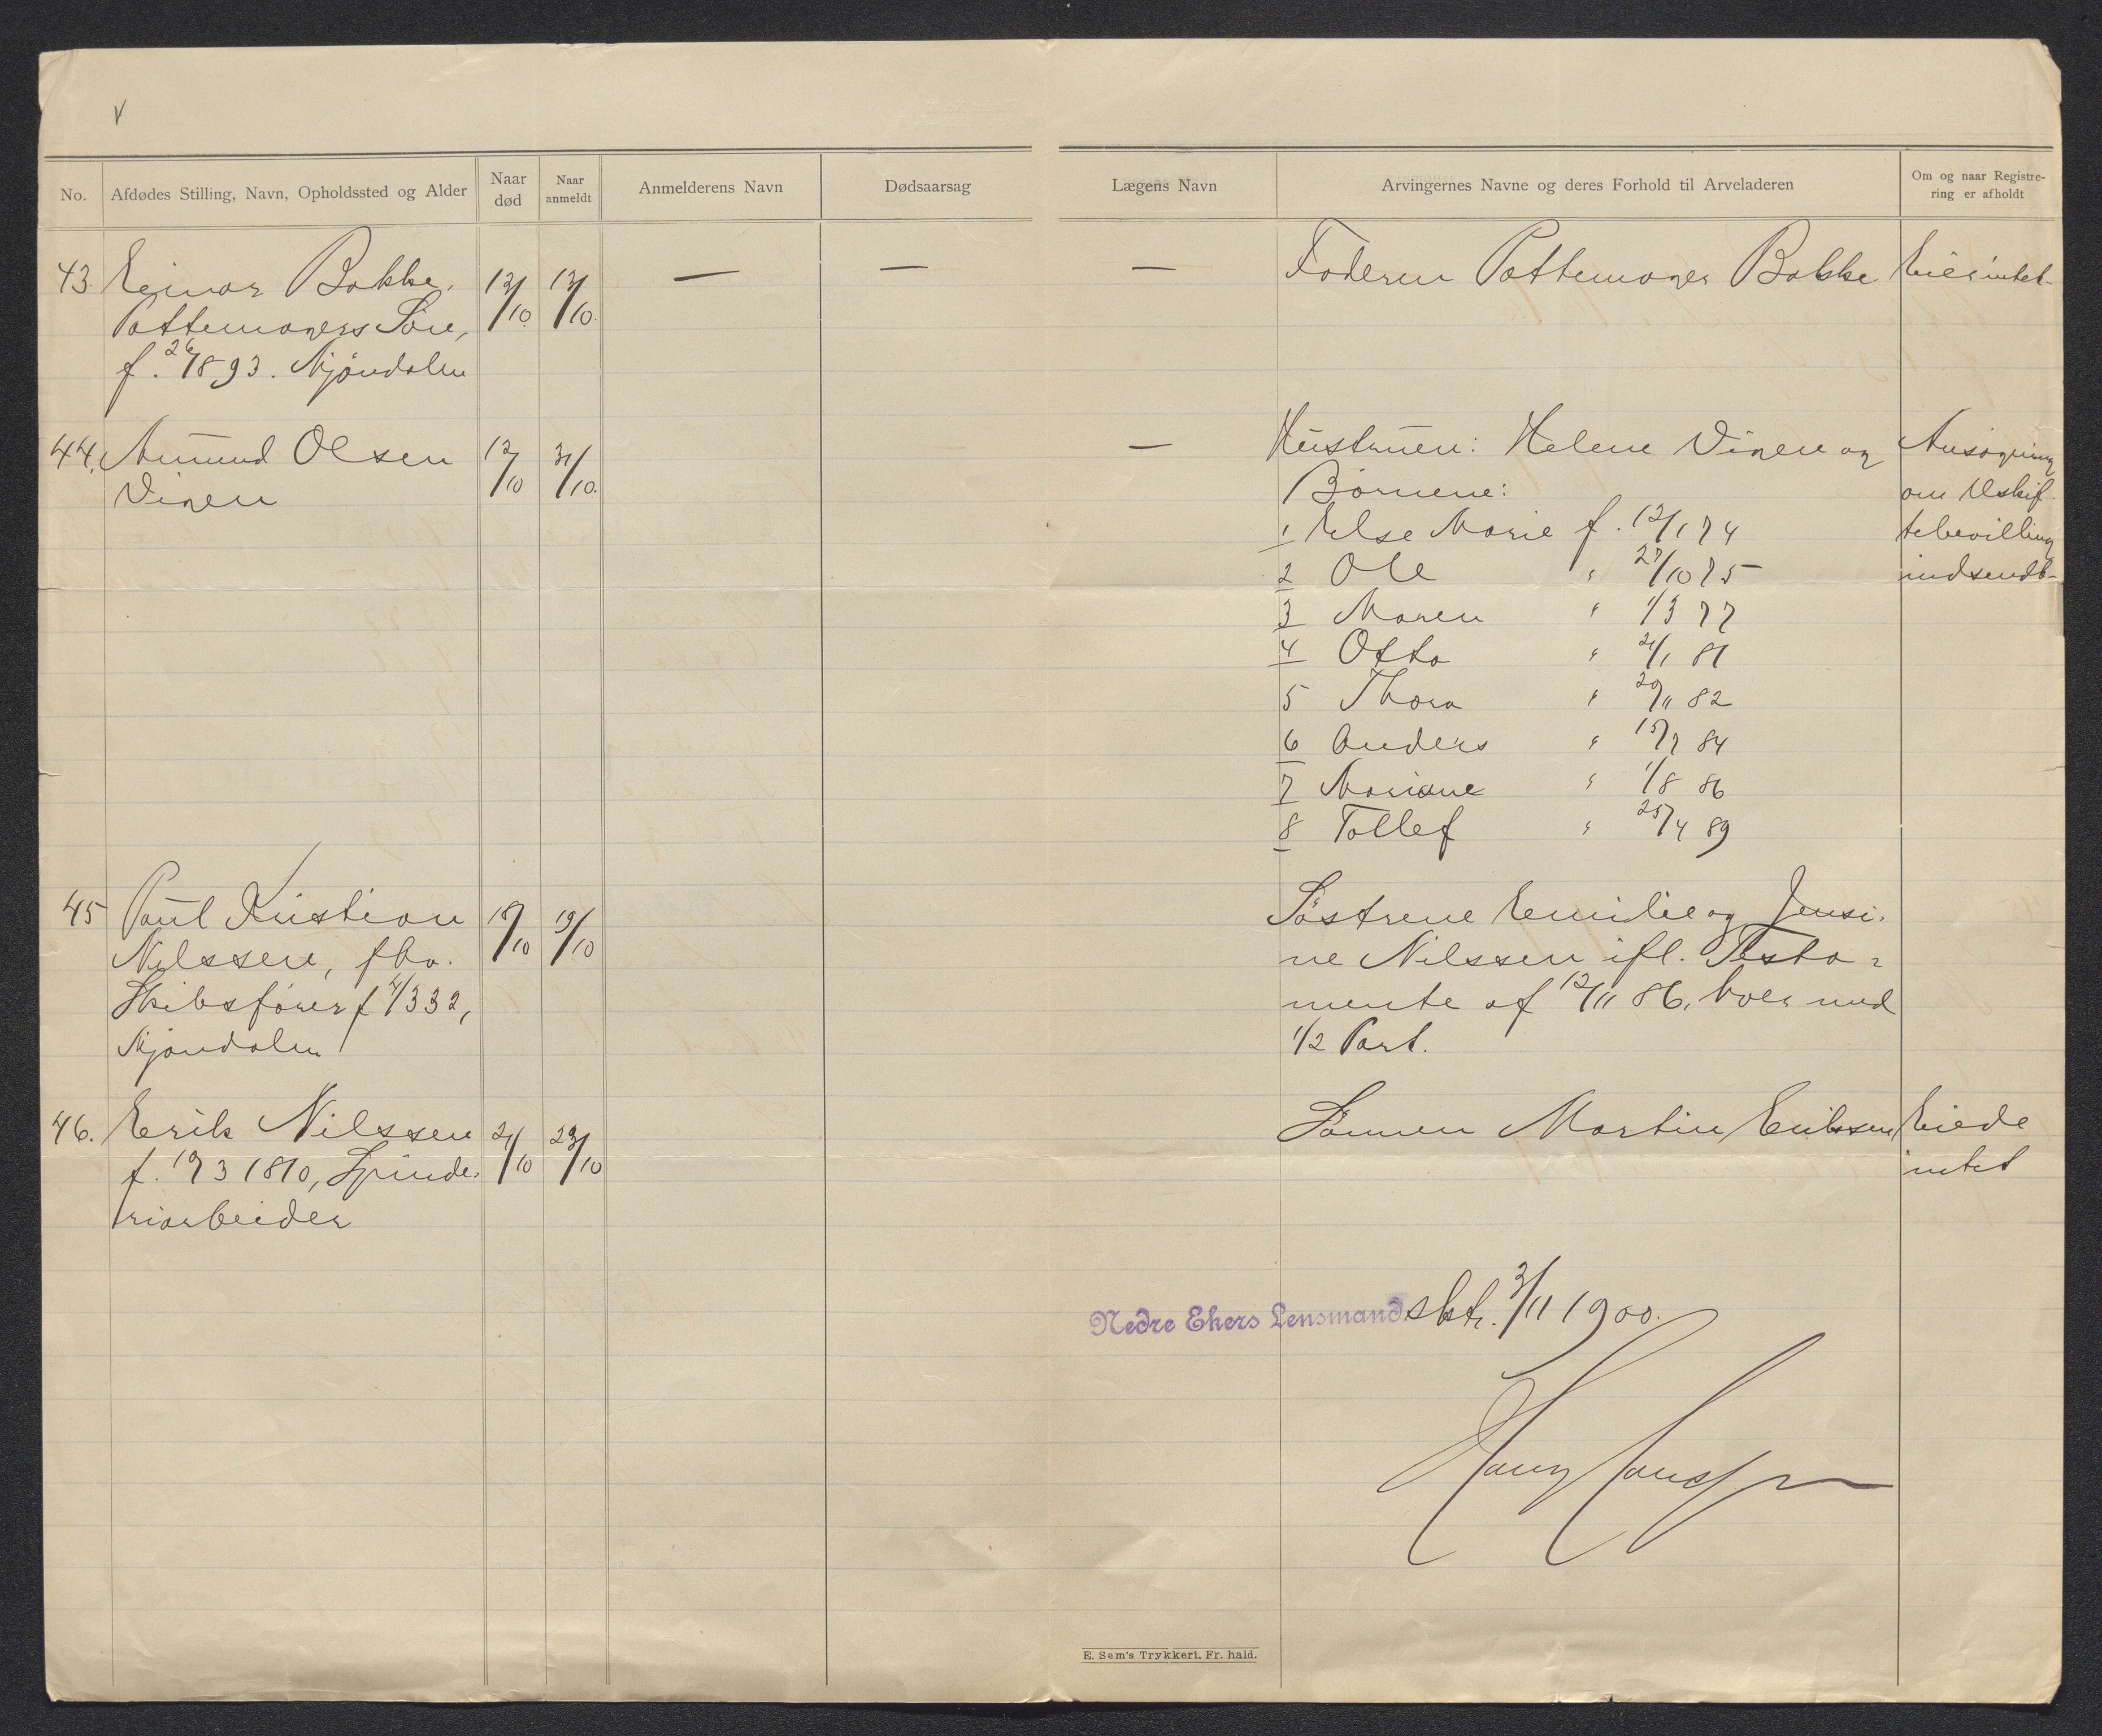 V
No. Afdødes Stilling, Navn, Opholdssted og Alder Naar død Naar anmeldt Anmelderens Navn Dødsaarsag Lægens Navn Arvingernes Navne og deres Forhold til Arveladeren Om og naar Registre-ring er afholdt
43. Einar Bakke, 13/10 13/10. — — — Faderen Pottemager Bakke Eier intet.
Pottemagers Søn,
f. 1893. Mjøndalen
44. Amund Olsen 12/10 31/10. — Hustruen: Helene Vigen og Ansøgning
Vigen Børnene: om Uskif-
1 Else Marie f. 12/1 74 tebevilling
2 Ole " 27/10 75 indsendt.
3 Maren " 1/3 77
4 Otto " 21/1 81
5 Thora " 20/11 82
6 Anders " 15/7 84
7 Mariane " 1/8 86
8 Tollef " 25/4 89
45 Paul Kristian 18/10 19/10 Søstrene Emilie og Jensi-
Nilssen, fhv. ne Nilssen ifl. Testa-
Skibsfører f 4/3 32, mente af 12/11 86, hver med
Mjøndalen 1/2 Part.
46. Erik Nilssen 21/10 23/10 Sønnen Martin Erikssen Eiede
f. 19/3 1810, Spinde- intet
riarbeider
Nedre Ekers Lensmandsktr. 3/11 1900.
E. Sem's Trykkeri, Fr. hald.